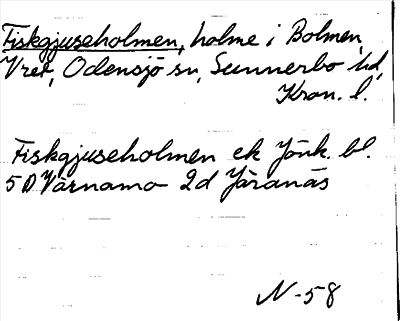 Fiskgjuseholmen, holme i Bolmen,
Vret, Odensjö sn, Sunnerbo hd,
Kron. l.
Fiskgjuseholmen ek Jönk. bl.
5 D Värnamo 2d Järanäs
N-58